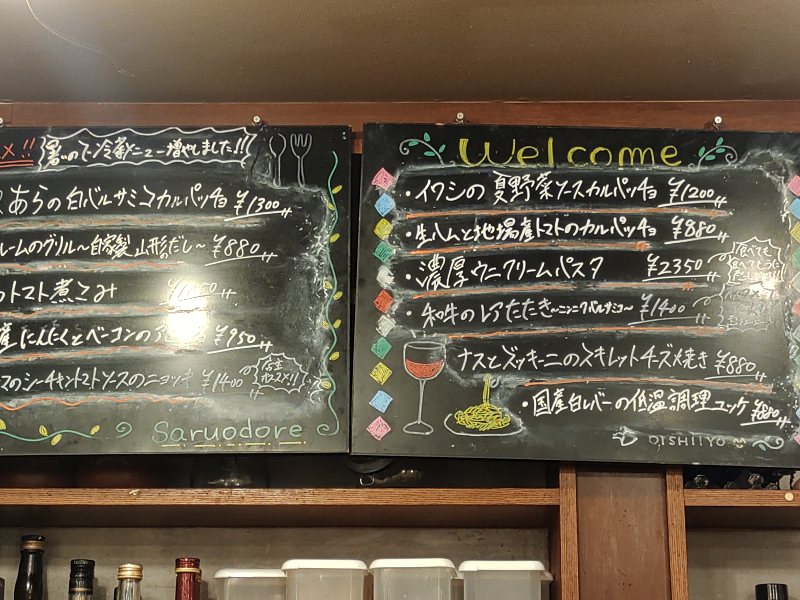 !! 暑いので冷菜メニュー増やしました!!
あらの白バルサミコカルパッチョ ¥1300
ームのグリル〜自家製 山形のだし〜 ¥880
トマト煮こみ
産にんにくとベーコンの ¥950
スのシーチキントマトソースのニョッキ ¥1400
店主オススメ!!
Saruodore
Welcome
・イワシの夏野菜ソースカルパッチョ ¥1200
・生ハムと地場産トマトのカルパッチョ ¥880
・濃厚ウニクリームパスタ ¥2350
・和牛のレアたたき〜ニンニクバルサミコ〜 ¥1400
ナスとズッキーニのスキレットチーズ焼き ¥880
・国産白レバーの低温調理ユッケ ¥880
OISHIIYO